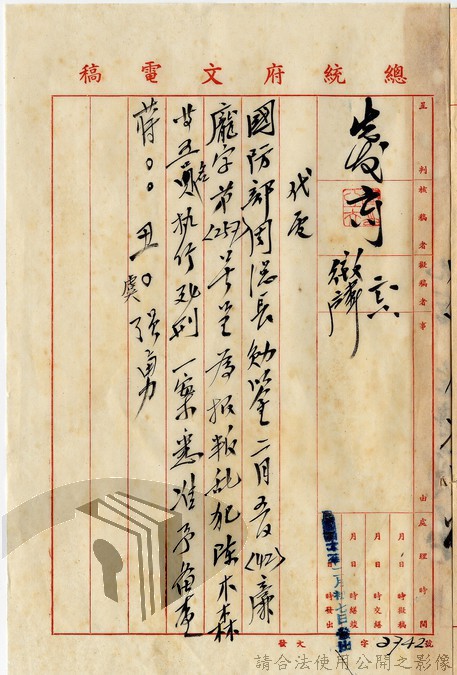 總統府文電稿
呈判
核稿者
擬稿者
事由
處理時間
月 日 時擬稿
月 日 時交繕
月 日 時繕校
月 日 時發出
代電
國防部周總長勛鑒二月五日(42)廉
龐字第(257)號呈為報叛亂犯陳木森
等五名執行死刑一案悉准予備查
蔣○○丑○虞張勇
發文 字 2742 號
請合法使用公開之影像